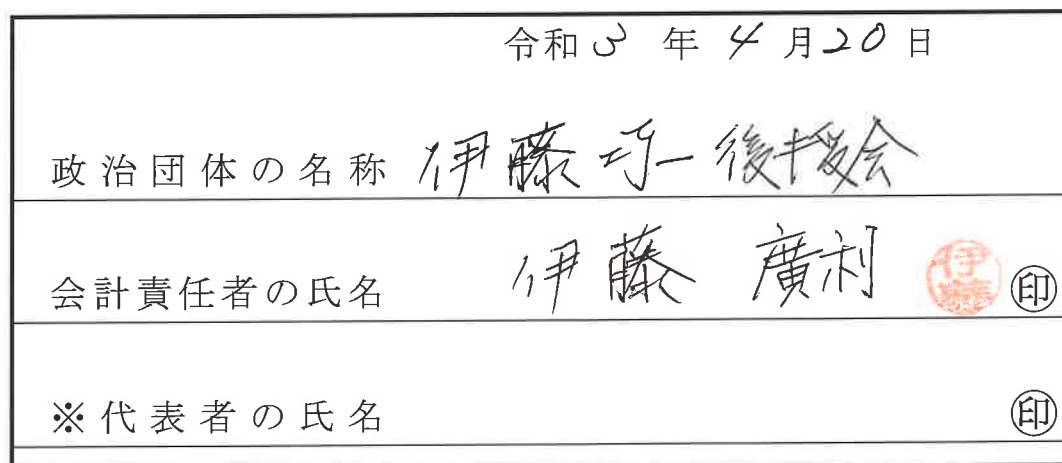 令和3年4月20日
政治団体の名称 伊藤 一後援会
会計責任者の氏名 伊藤 廣利 伊藤 印
※代表者の氏名 印